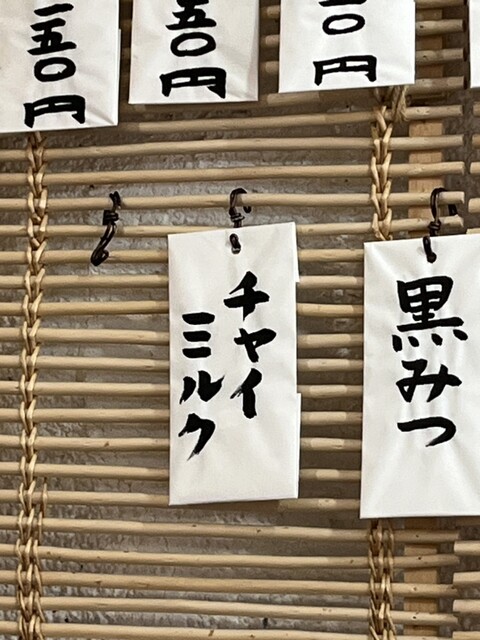 一〇円
五〇円
二五〇円
黒みつ
チャイ
ミルク